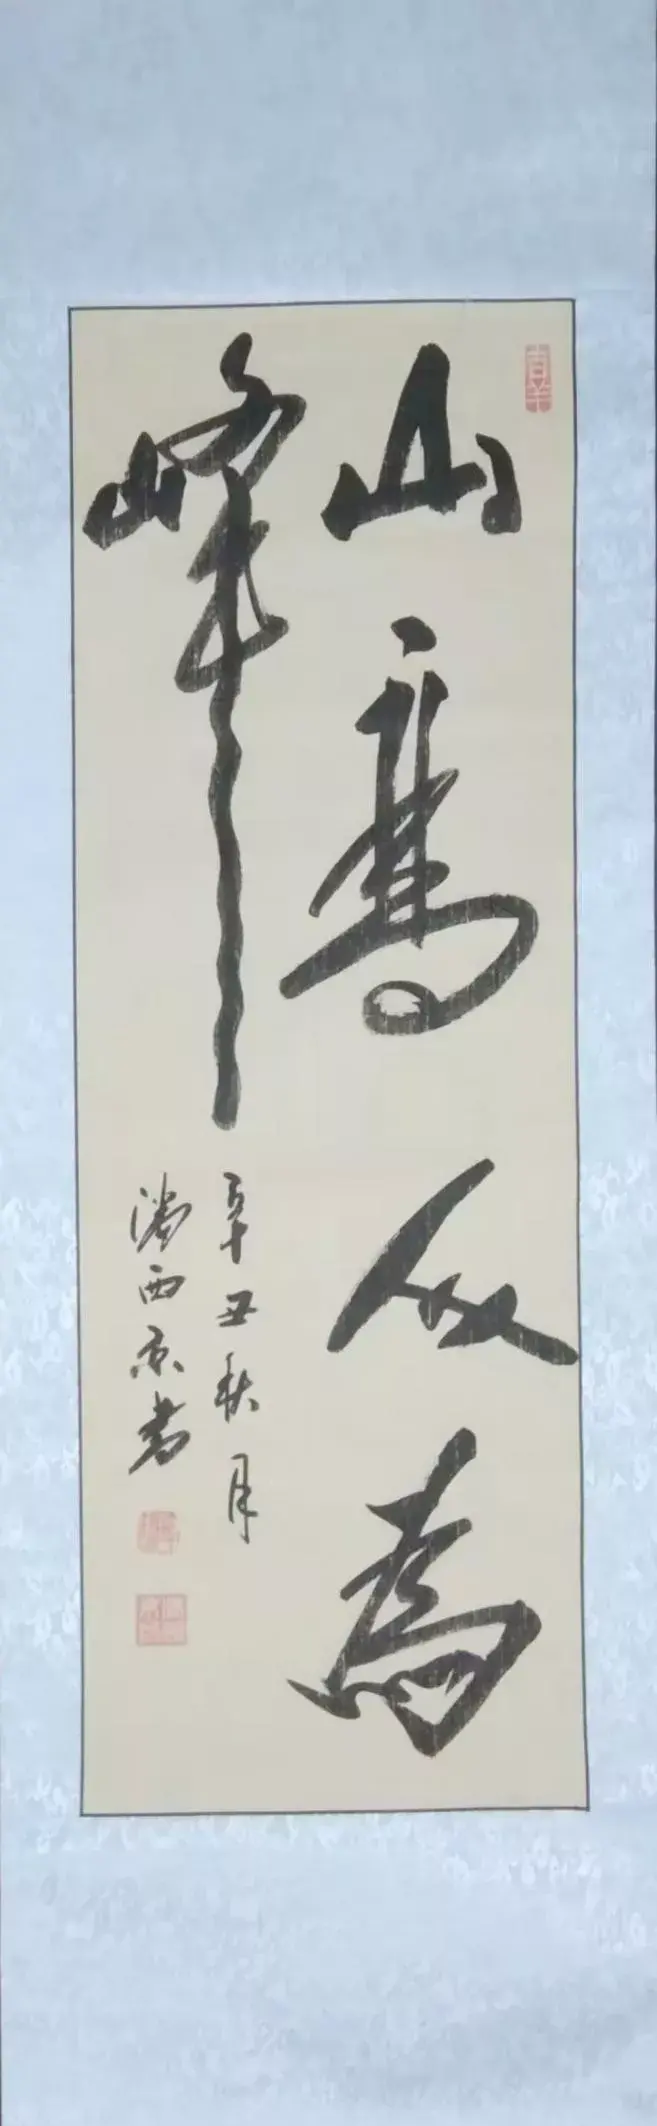 山高人為
峰
辛丑秋月
潘西京書